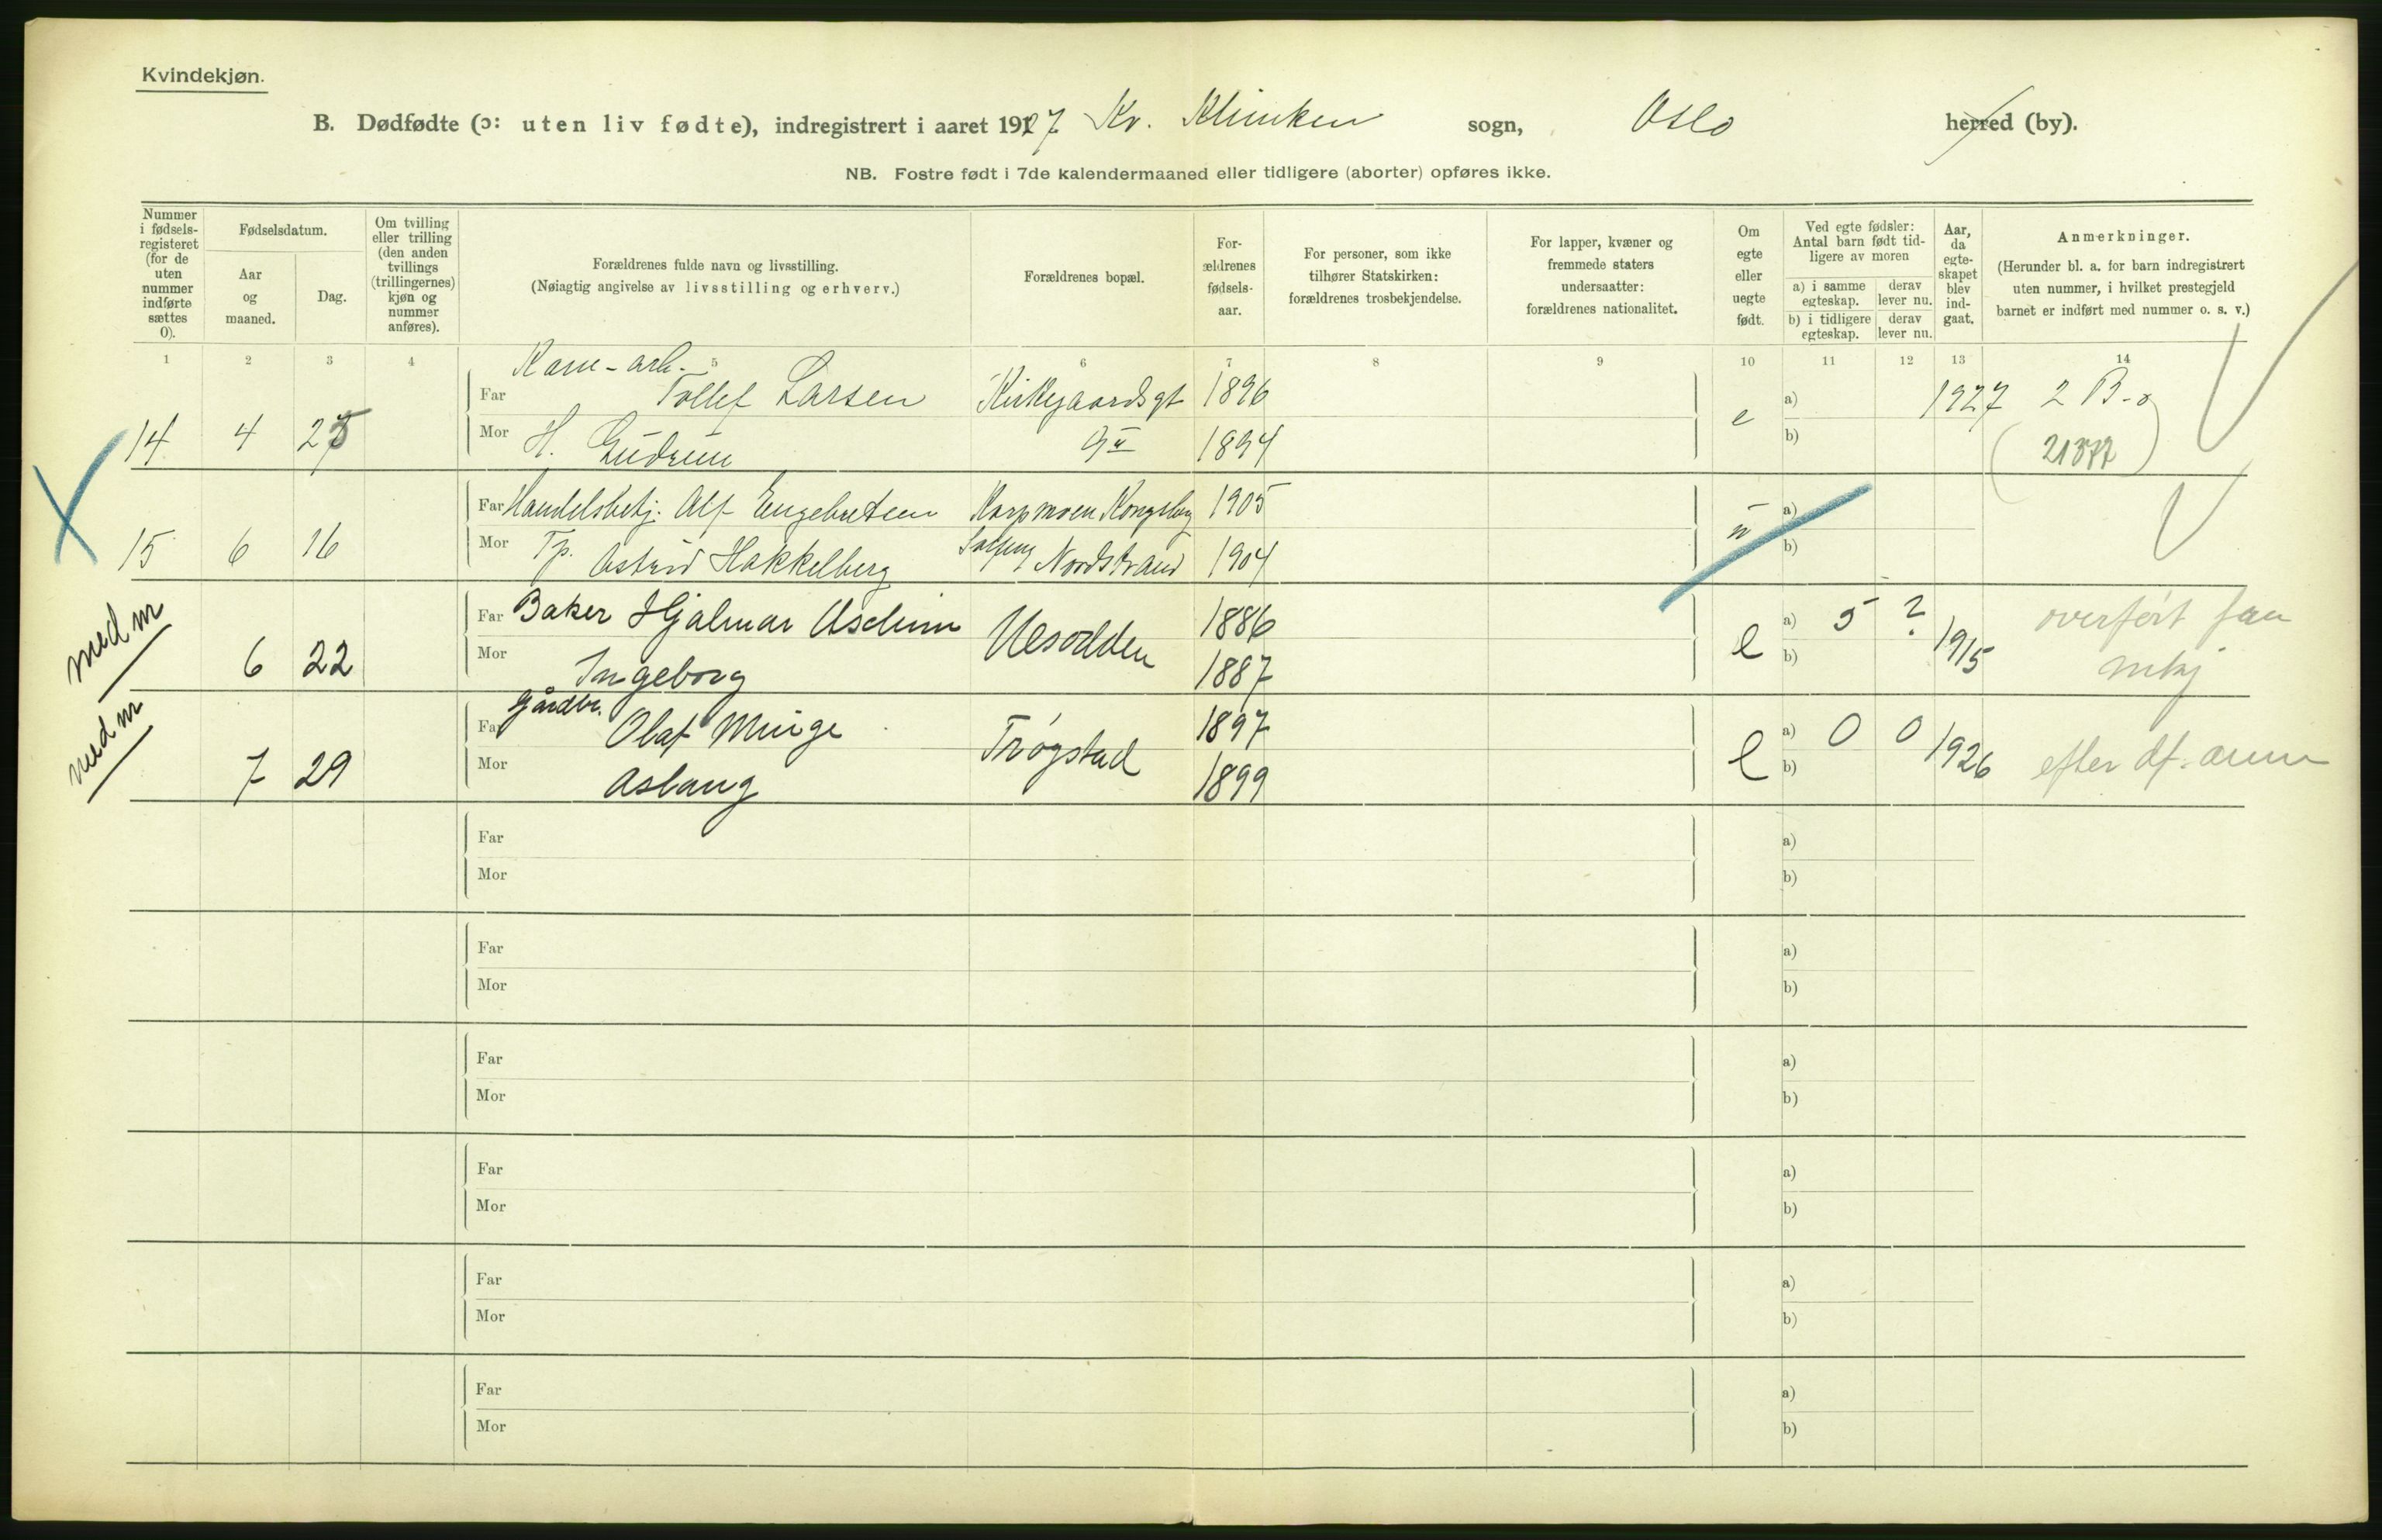 Kvindekjøn.
B. Dødfødte (ɔ: uten liv fødte), indregistrert i aaret 1927 Kv. Klinken sogn, Oslo herred (by).
NB. Fostre født i 7de kalendermaaned eller tidligere (aborter) opføres ikke.
Nummer i fødsels-registeret (for de uten nummer indførte sættes 0).
Fødselsdatum.
Aar og maaned.
Dag.
Om tvilling eller trilling (den anden tvillings (trillingernes) kjøn og nummer anføres).
Forældrenes fulde navn og livsstilling.
(Nøiagtig angivelse av livsstilling og erhverv.)
Forældrenes bopæl.
For-ældrenes fødsels-aar.
For personer, som ikke tilhører Statskirken: forældrenes trosbekjendelse.
For lapper, kvæner og fremmede staters undersaatter: forældrenes nationalitet.
Om egte eller uegte født.
Ved egte fødsler: Antal barn født tid-ligere av moren
a) i samme egteskap.
derav lever nu.
b) i tidligere egteskap.
derav lever nu.
Aar, da egte-skapet blev ind-gaat.
Anmerkninger.
(Herunder bl. a. for barn indregistrert uten nummer, i hvilket prestegjeld barnet er indført med nummer o. s. v.)
1 2 3 4 5 6 7 8 9 10 11 12 13 14
Far Tollef Larsen Kirkegaardsgt 1896 a) 1927 2 B-
14 4 Mor H. Gudrun 9 II 1894 e b)
Far Handelsbetj. Alf Engebretsen Kongsberg 1905 a)
15 6 16 Mor Tp. Astrid Hakkelberg Nordstrand 1904 u b)
med m
Far Baker Hjalmar Aschim Nesodden 1886 a) 5 ? overført fra
6 22 Mor Ingeborg 1887 e b) 1915 mkj
med m
Gårdbr.
Far Olaf Minge Trøgstad 1897 a) 0 0
7 29 Mor Aslaug 1899 e b) 1926 efter df.
Far a)
Mor b)
Far a)
Mor b)
Far a)
Mor b)
Far a)
Mor b)
Far a)
Mor b)
Far a)
Mor b)